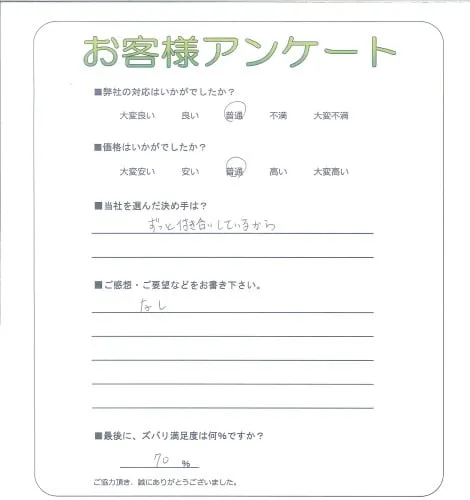 お客様アンケート
■弊社の対応はいかがでしたか？
大変良い 良い 普通 不満 大変不満
■価格はいかがでしたか？
大変安い 安い 普通 高い 大変高い
■当社を選んだ決め手は？
ずっと付き合いしているから
■ご感想・ご要望などをお書き下さい。
なし
■最後に、ズバリ満足度は何%ですか？
70 %
ご協力頂き、誠にありがとうございました。